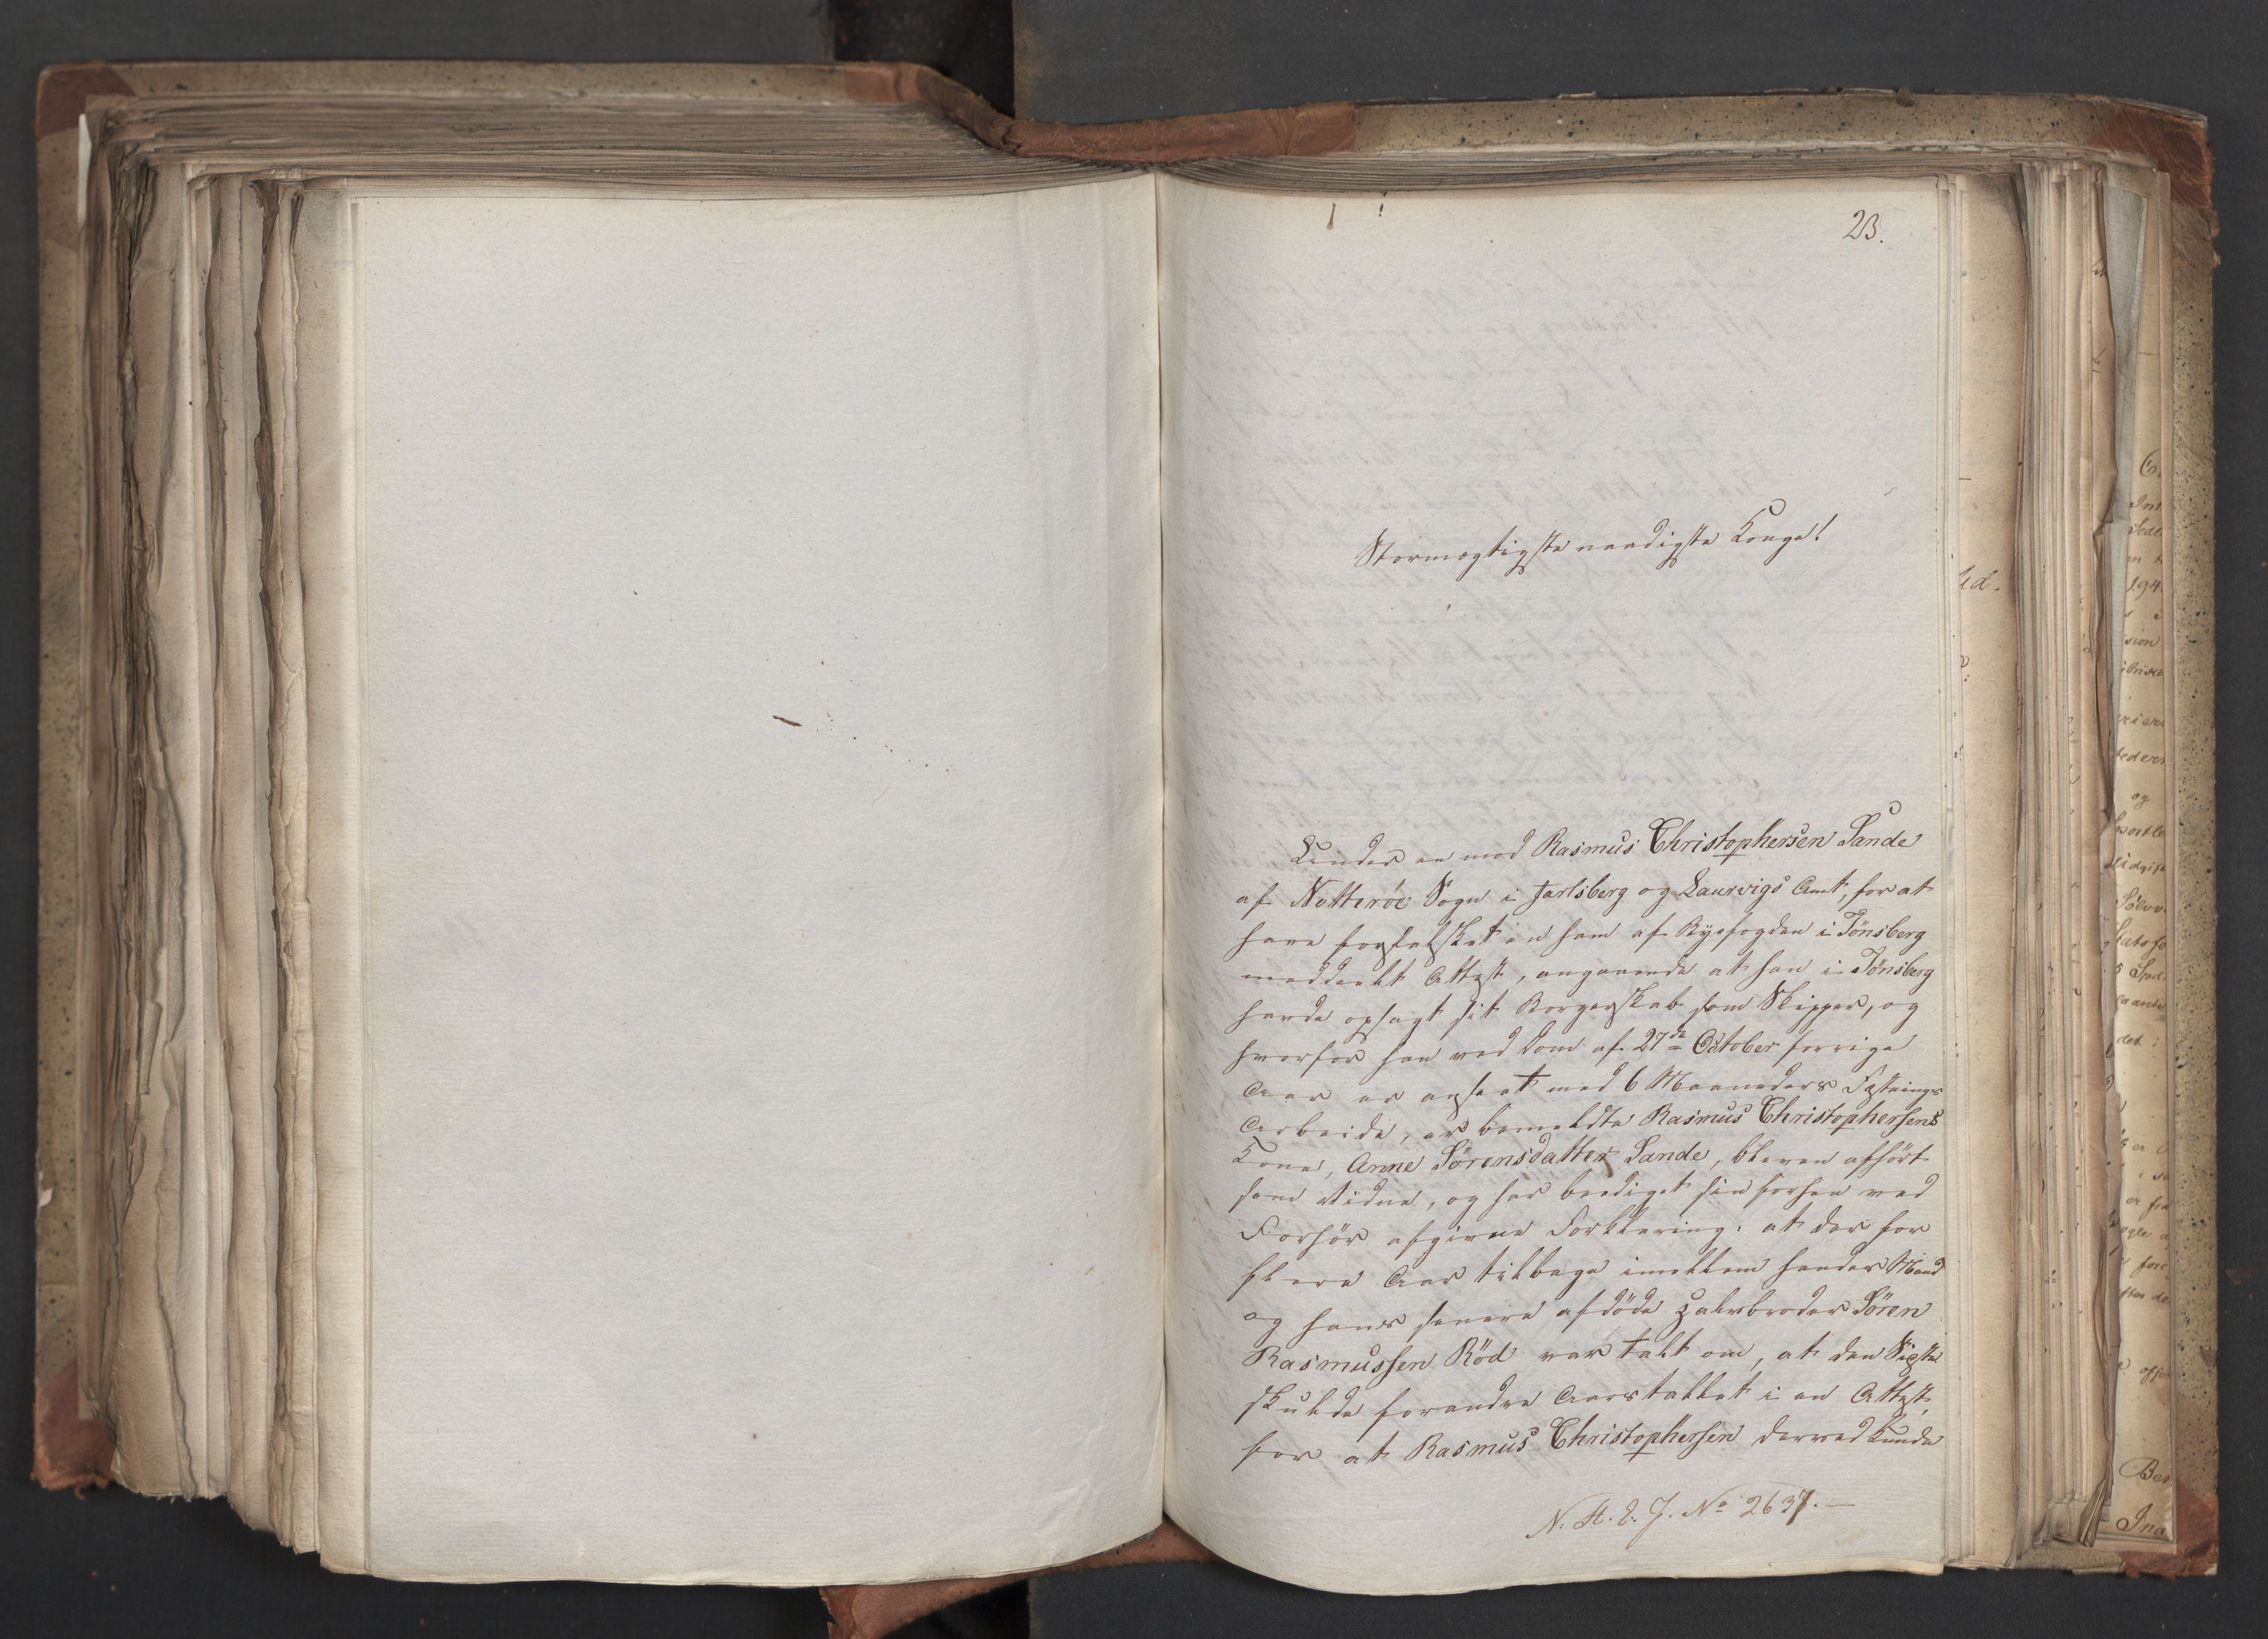 23.
Stormægtigste naadigste Konge!
Under en mod Rasmus Christophersen Sande
af Nøtterøe Sogn i Jarlsberg og Laurvigs Amt, for at
have forfalsket en ham af Byefogden i Tönsberg
meddeelt Attest, angaaende at han i Tönsberg
havde opsagt sit Borgerskab som Skipper, og
hvorfor han ved Dom af 27de October forrige
Aar er anseet med 6 Maaneders Fæstnings
Arbeide, er bemeldte Rasmus Christophersens
Kone, Anne Sörensdatter Sande, bleven afhört
som Vidne, og har beediget sin forhen ved
Forhör afgivne Forklaring: at der for
flere Aar tilbage imellem hendes Mand
og hans senere afdöde Halvbroder Sören
Rasmussen Röd var talt om, at den Sidste
skulde forandre Aarstallet i en Attest,
for at Rasmus Christophersen derved kunde
N. A. E. J. No 2637.—